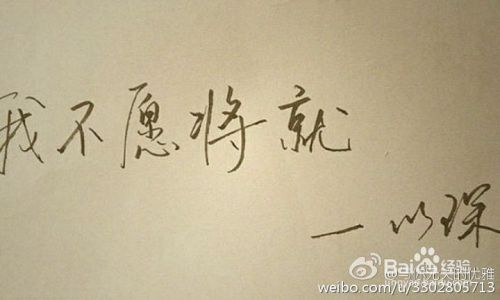 我不愿将就
一以琛
Baidu经验
weibo.com/u/3302805713